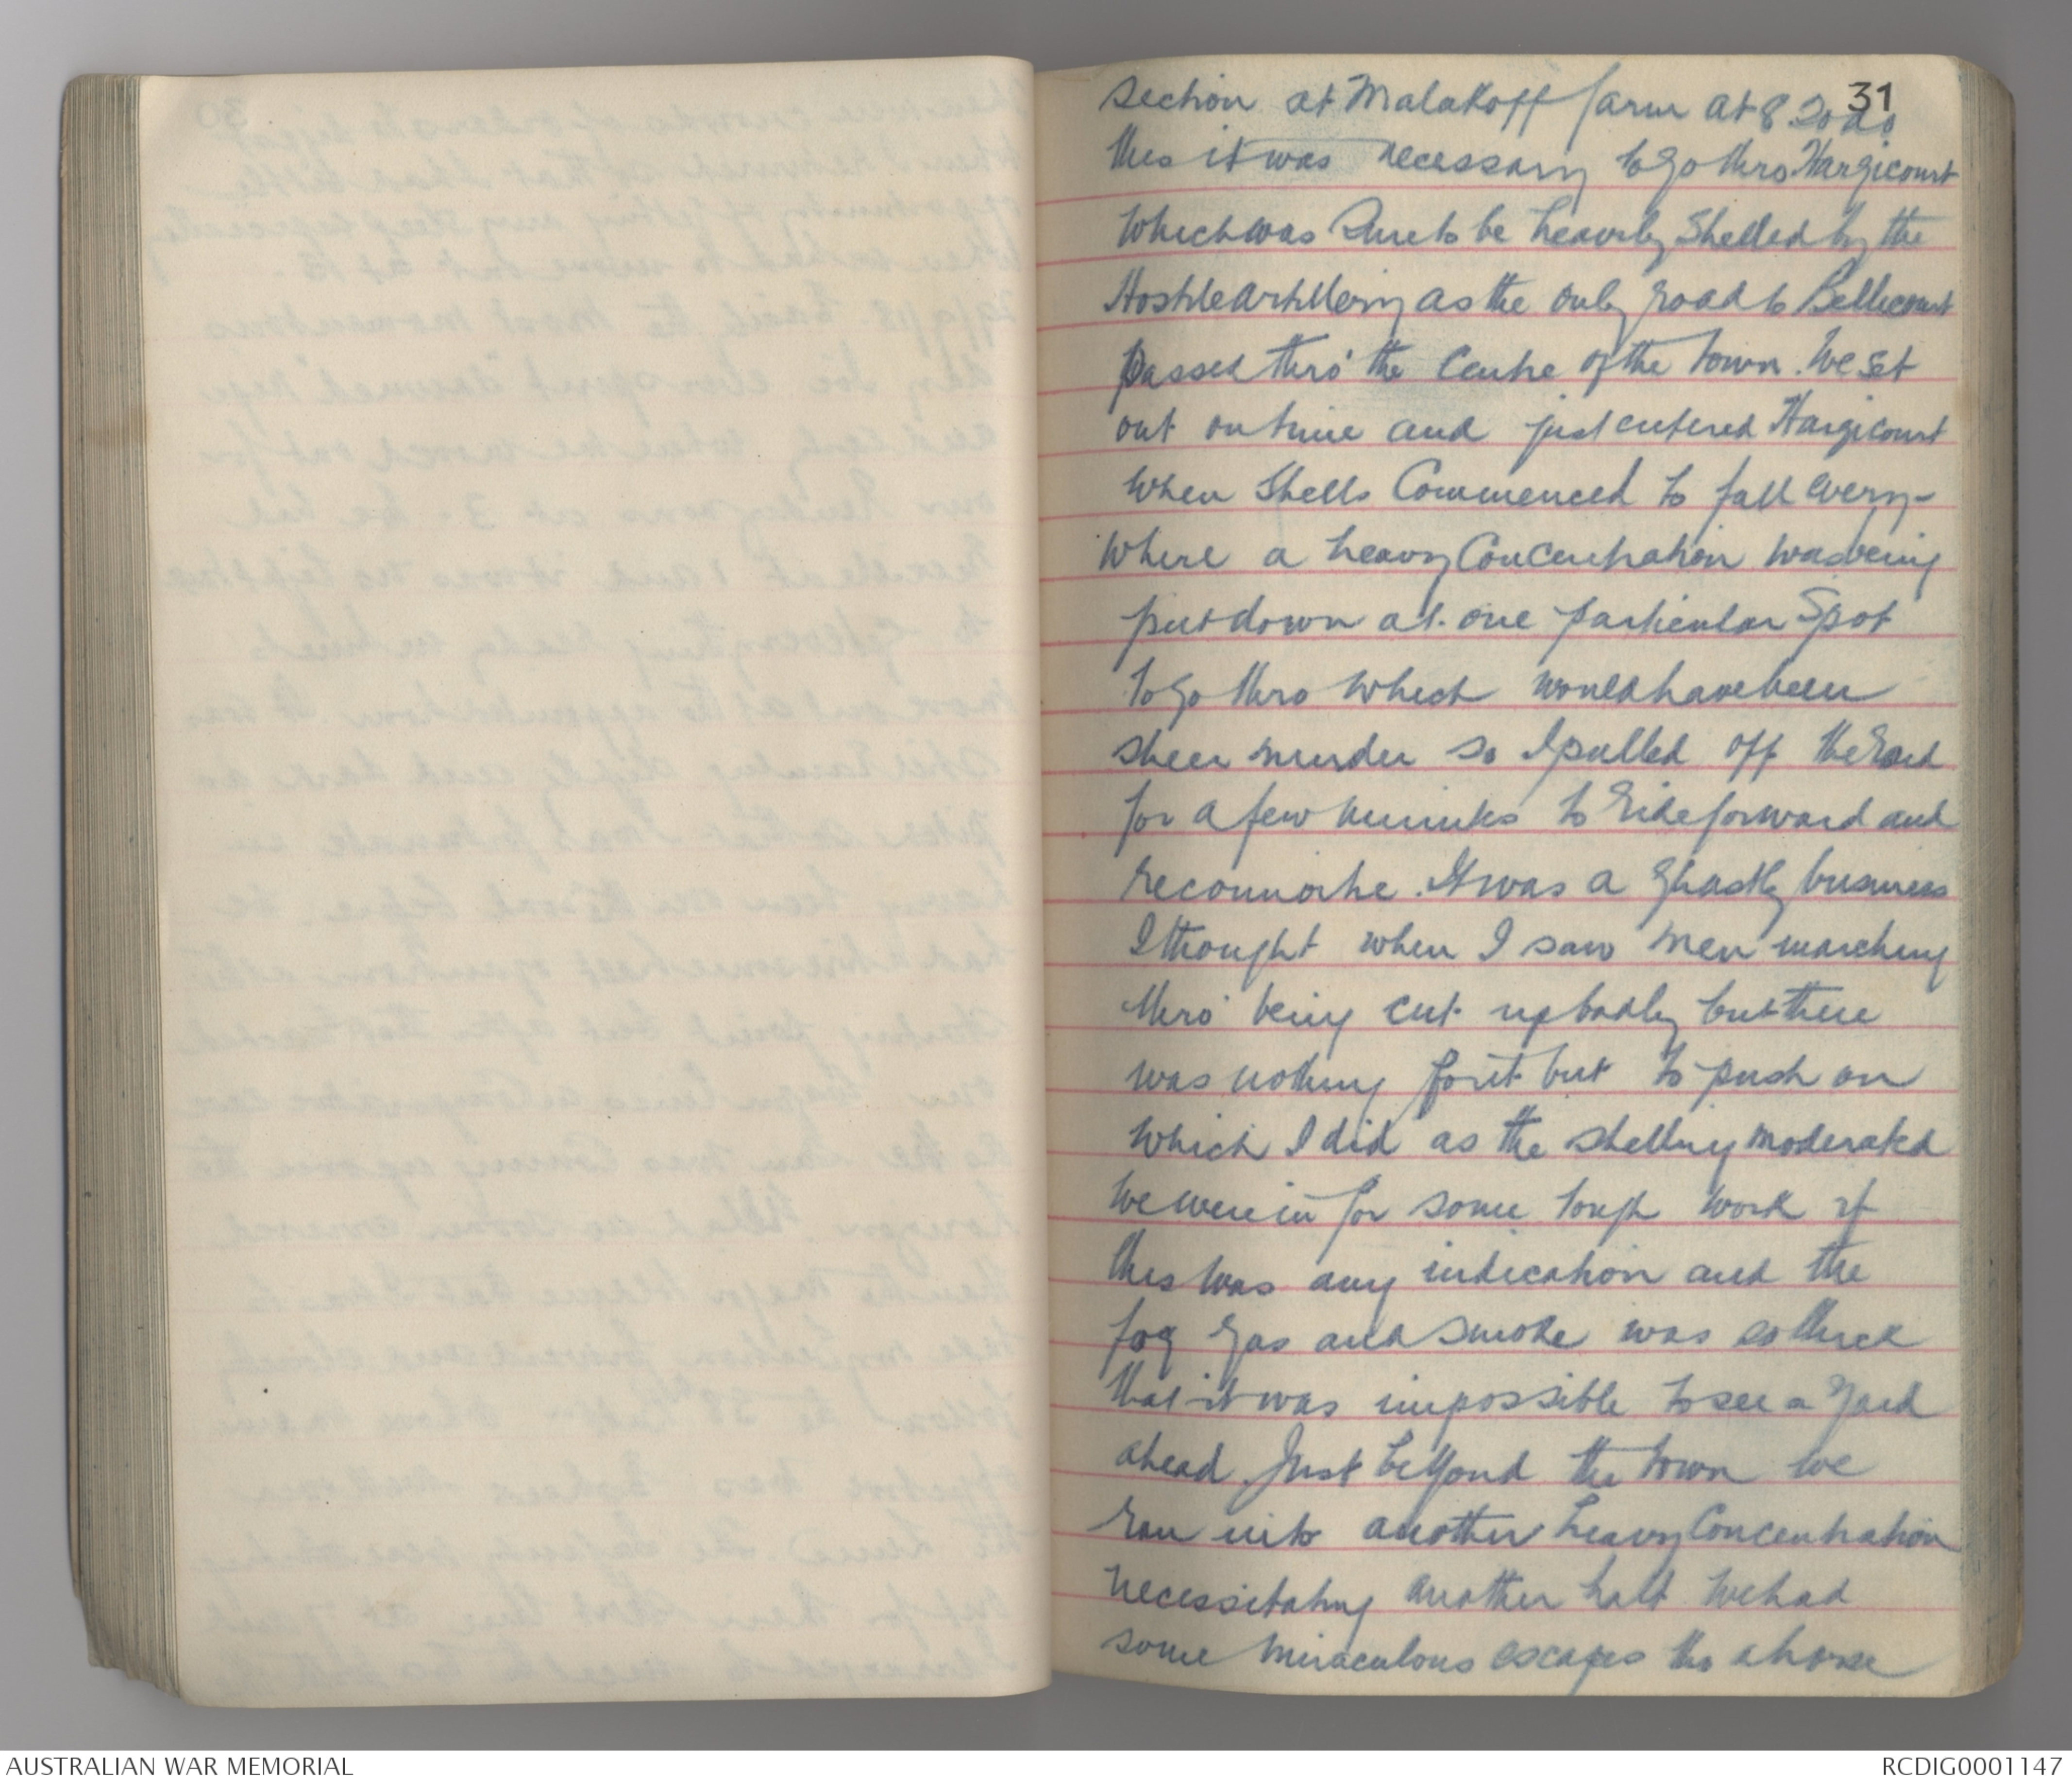 31
section at Malakoff farm at 8 To do
this it was necessary to go thro Hargicourt
which was sure to be heavily shelled by the
Hostile Artillery as the only road to Bellicourt
passed thro' the Centre of the town. We set
out on time and just entered Hargicourt
when shells Commenced to fall every-
where a heavy Concentration was being
put down at one particular Spot
to go thro which would have been
sheer murder so I pulled off the road
for a few minutes to ride forward and
reconnoitre. It was a ghastly business
I thought when I saw men marching
thro' being cut up badly but there
was nothing for it but to push on
which I did as the shelling moderated
we were in for some tough work if
this was any indication and the
fog gas and smoke was so thick
that it was impossible to see a yard
ahead. Just beyond the town we
ran into another heavy Concentration
necessitating another halt we had
some miraculous escapes tho a horse
AUSTRALIAN WAR MEMORIAL
RCDIG0001147